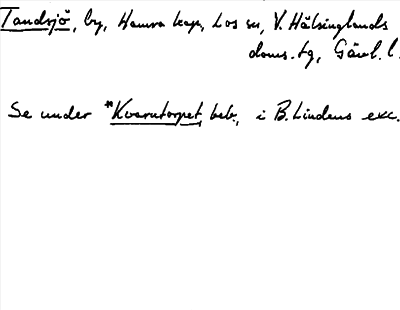 Tandsjö, by, Hamra kap, Los sn, V. Hälsinglands
doms. tg, Gävl. l.
Se under *Kvarntorpet, beb., i B. Lindens exc.